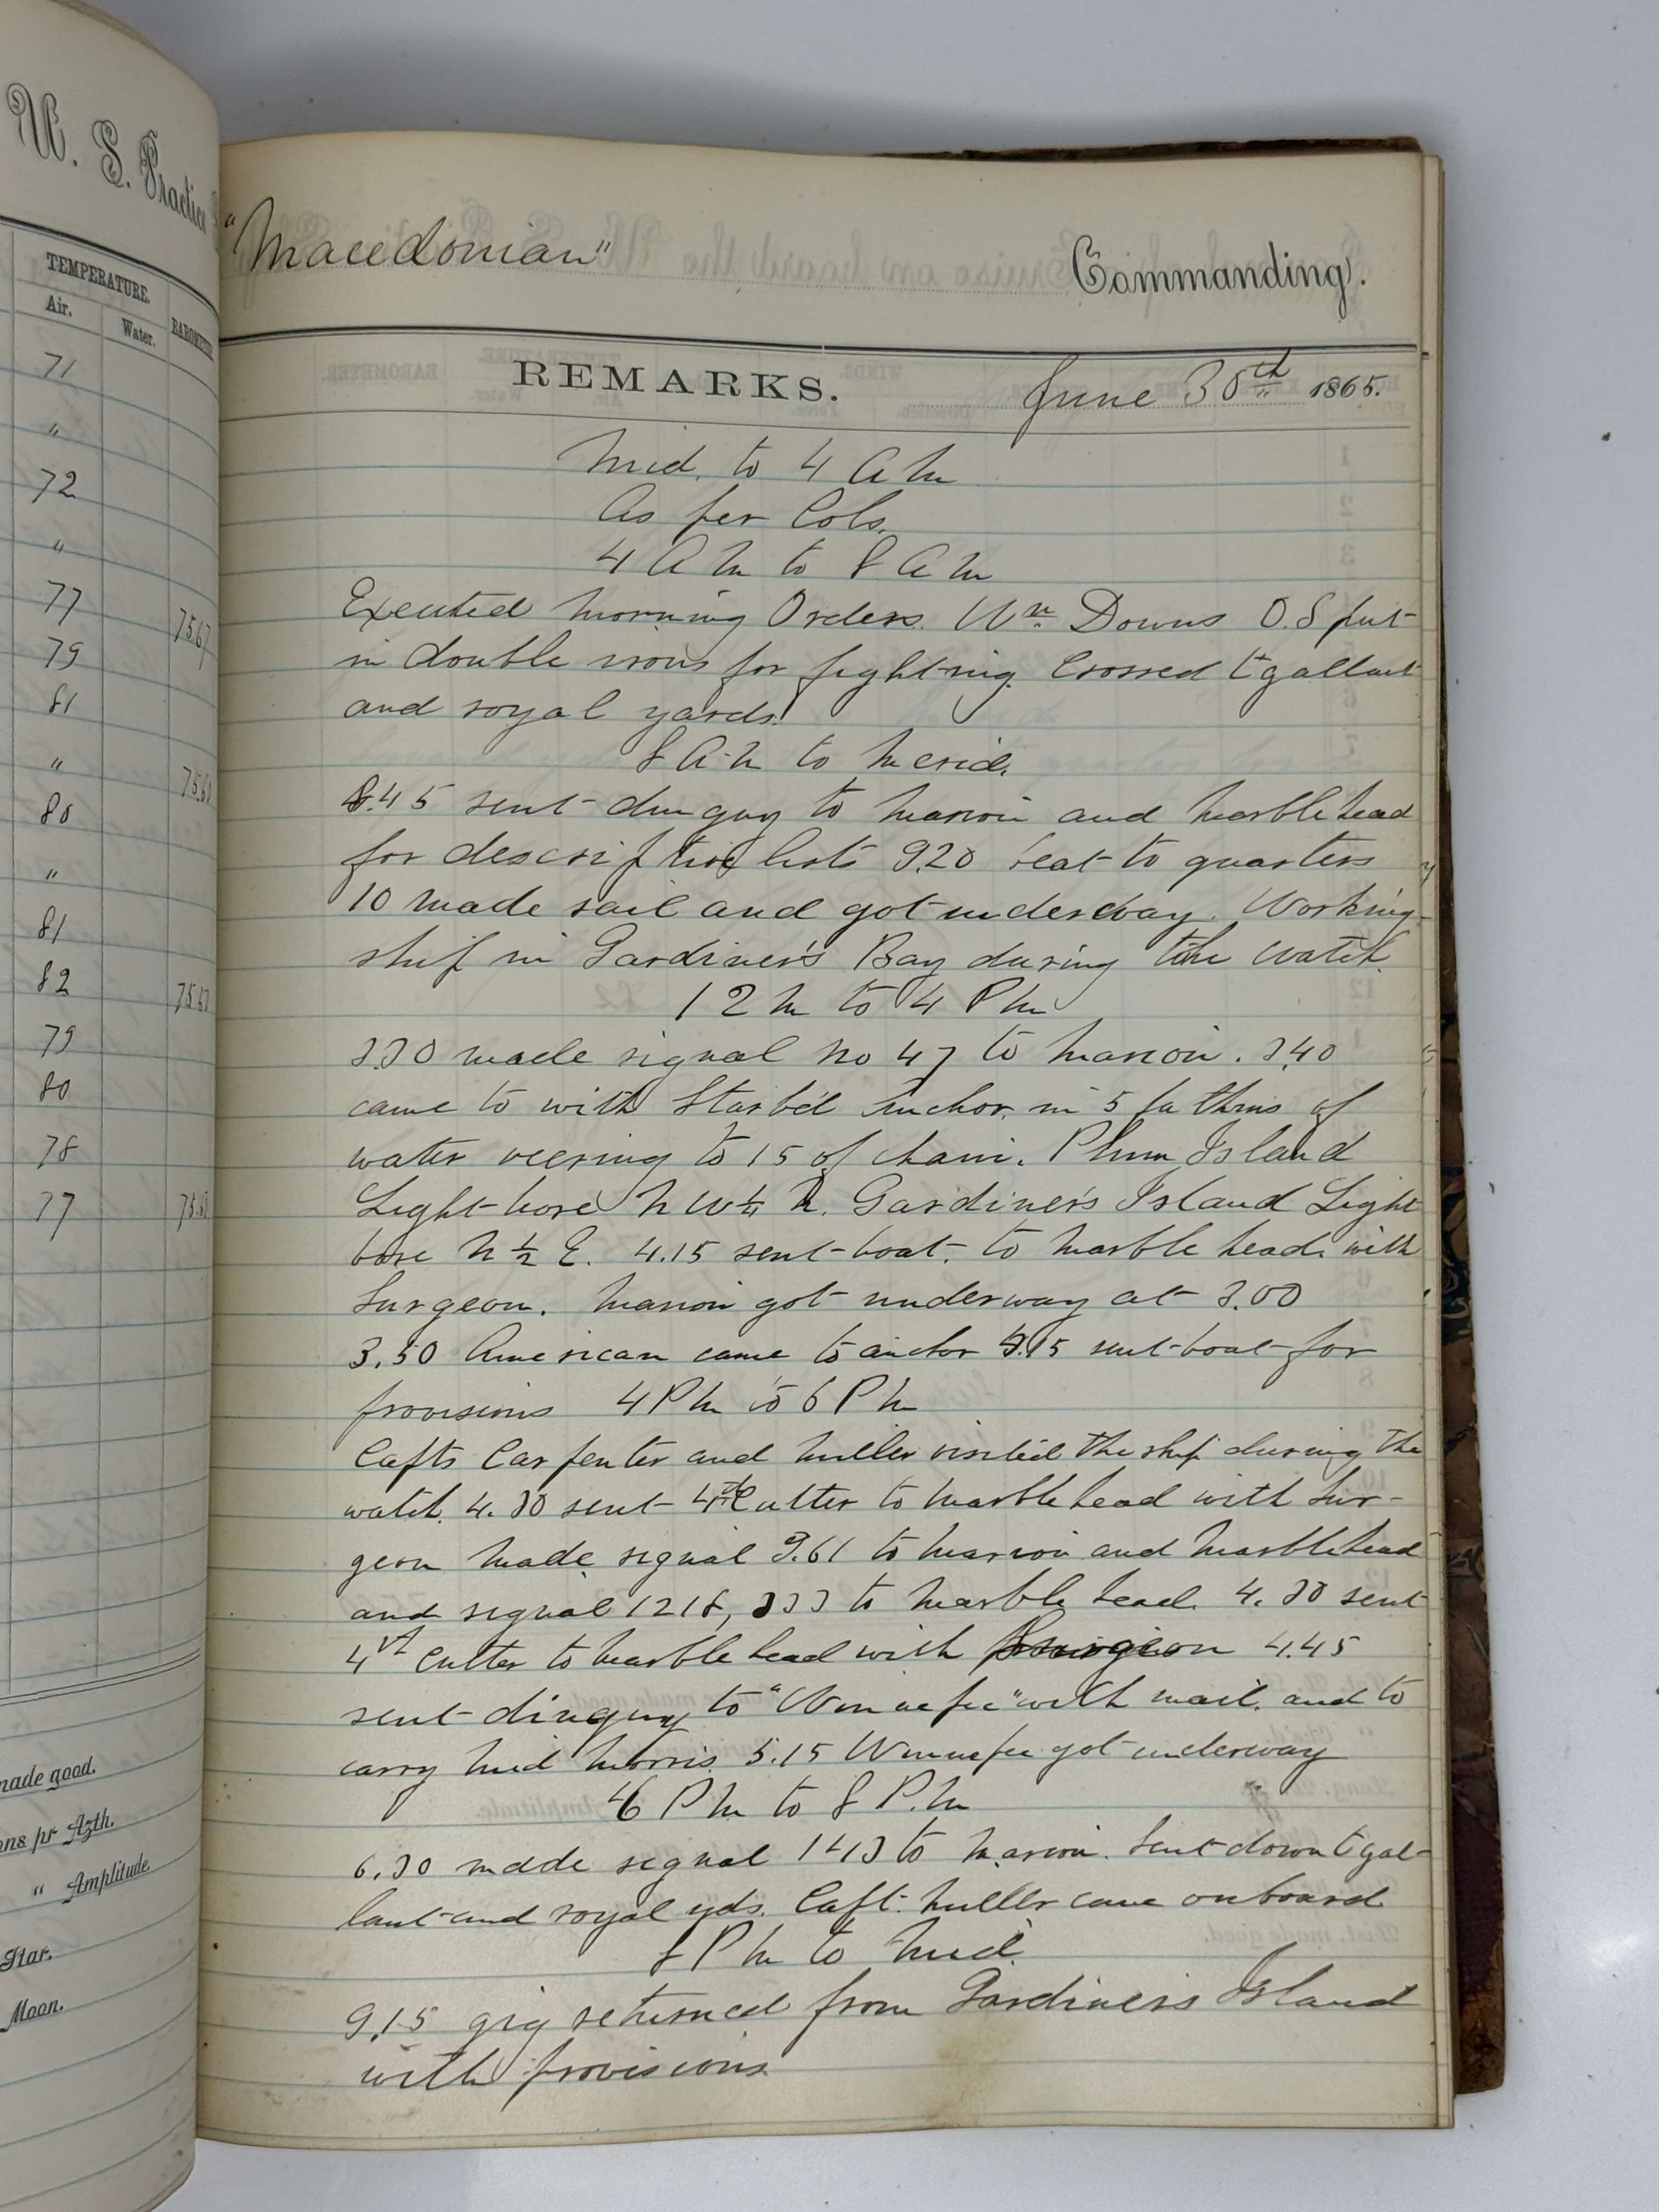 W. S. Practice
TEMPERATURE.
BAROMETER
Air.
Water.
71
"
72
"
77
75.67
79
81
"
75.61
80
"
81
82
75.62
79
80
78
77
made good.
ons pr Azth.
" Amplitude
Star.
Moon.
"Macedonian"
Commanding.
REMARKS.
June 30th 1865.
Mid. to 4 A M
As per Cols.
4 A M to 8 A M
Executed morning Orders. Wm. Downs O.S put
in double irons for fighting. Crossed t'gallant
and royal yards.
8 A M to Merid.
8.45 sent dinguy to Marion and Marblehead
for descriptive lists 9.20 beat to quarters
10 made sail and got underway. Working
ship in Gardiner's Bay during the watch.
12 M to 4 P M
3.30 made signal No 47 to Marion. 3.40
came to with Starb'd Anchor in 5 fathms of
water veering to 15 of chain. Plum Island
Light bore N W ¼ N. Gardiner's Island Light
bore N ½ E. 4.15 sent boat to Marblehead with
Surgeon. Marion got underway at 3.00
3.50 American came to anchor 4.15 sent boat for
provisions 4 P M to 6 P M
Capts Carpenter and Miller visited the ship during the
watch. 4.30 sent 4th Cutter to Marblehead with Sur-
geon made signal 361 to Marion and Marblehead
and signal 1218, 333 to Marblehead. 4.30 sent
cutter to Marblehead with Surgeon 4.45
sent dinguy to "Winnepec" with mail. and to
carry Mid Morris. 5.15 Winnepec got underway
6 P M to 8 P.M
6.30 made signal 1413 to Marion. Sent down t'gal-
lant and royal yds. Capt. Miller came onboard
8 P M to Mid.
9.15 gig returned from Gardiners Island
with provisions.